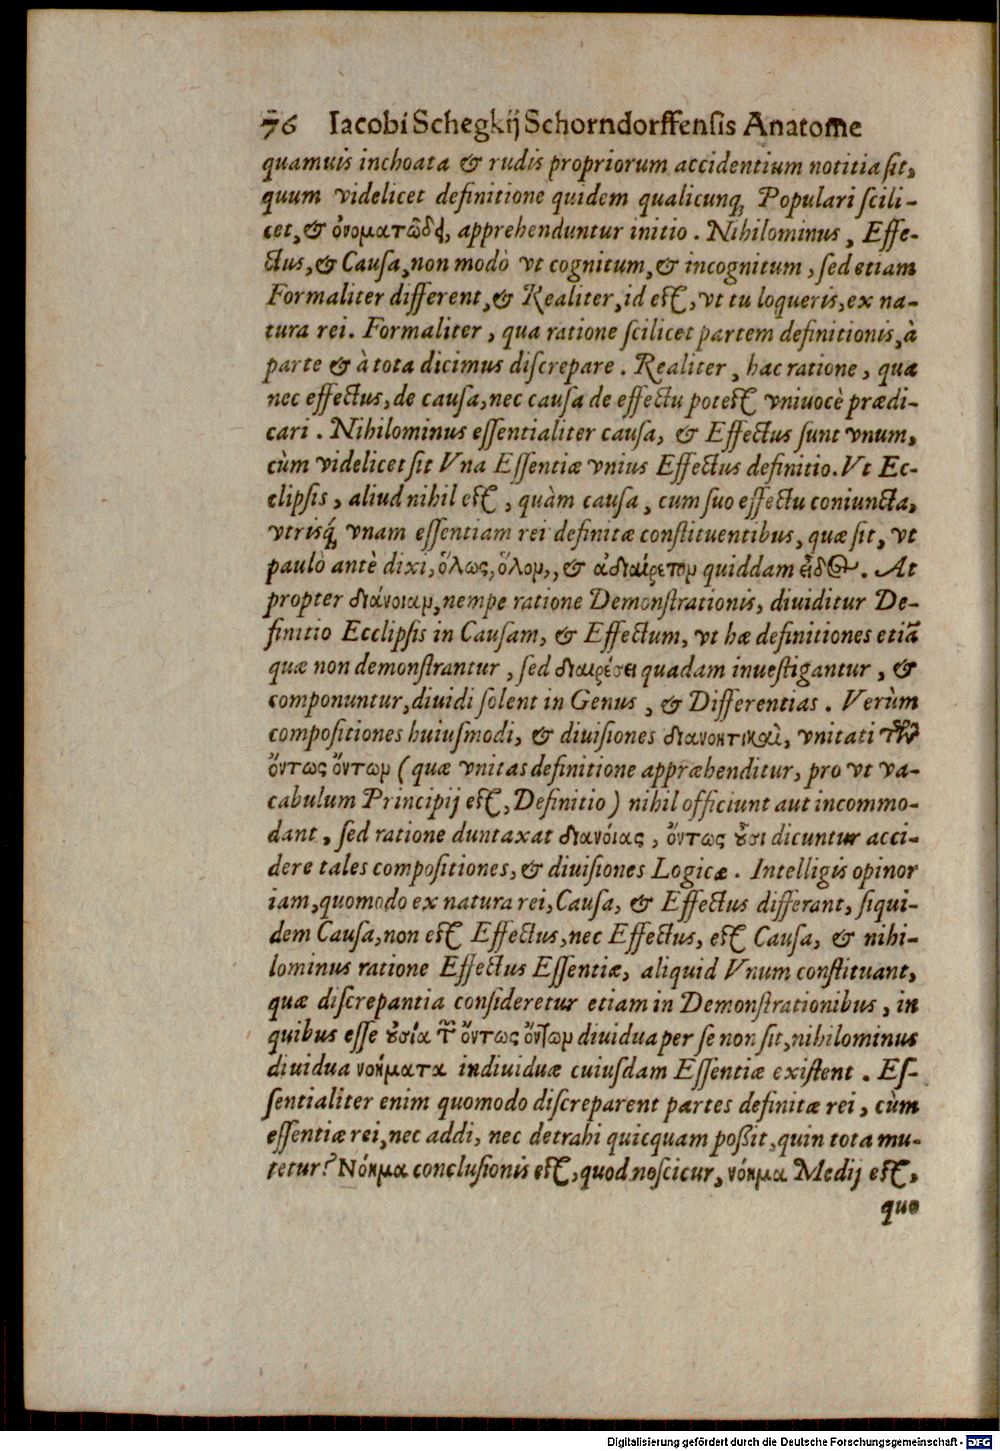 76 Iacobi Schegkij Schorndorffensis Anatome
quamuis inchoata & rudis propriorum accidentium notitia sit,
quum videlicet definitione quidem qualicunq; Populari scili-
cet, & ὀνοματώδει, apprehenduntur initio. Nihilominus, Effe-
ctus, & Causa, non modò vt cognitum, & incognitum, sed etiam
Formaliter different, & Realiter, id est, vt tu loqueris, ex na-
tura rei. Formaliter, qua ratione scilicet partem definitionis, à
parte & à tota dicimus discrepare. Realiter, hac ratione, qua
nec effectus, de causa, nec causa de effectu potest vniuocè prædi-
cari. Nihilominus essentialiter causa, & Effectus sunt vnum,
cùm videlicet sit Vna Essentiæ vnius Effectus definitio. Vt Ec-
clipsis, aliud nihil est, quàm causa, cum suo effectu coniuncta,
vtrisq́; vnam essentiam rei definitæ constituentibus, quæ sit, vt
paulò antè dixi, ὅλως, ὅλον,, & ἀδιαίρετον quiddam εἶδος. At
propter διάνοιαν, nempe ratione Demonstrationis, diuiditur De-
finitio Ecclipsis in Causam, & Effectum, vt hæ definitiones etiã
quæ non demonstrantur, sed διαιρέσει quadam inuestigantur, &
componuntur, diuidi solent in Genus, & Differentias. Verùm
compositiones huiusmodi, & diuisiones διανοητικαὶ, vnitati τῶν
ὄντως ὄντων (quæ vnitas definitione appræhenditur, pro vt va-
cabulum Principij est, Definitio) nihil officiunt aut incommo-
dant, sed ratione duntaxat διανοίας, ὄντως οὖσι dicuntur acci-
dere tales compositiones, & diuisiones Logicæ. Intelligis opinor
iam, quomodo ex natura rei, Causa, & Effectus differant, siqui-
dem Causa, non est Effectus, nec Effectus, est Causa, & nihi-
lominus ratione Effectus Essentiæ, aliquid Vnum constituant,
quæ discrepantia consideretur etiam in Demonstrationibus, in
quibus esse οὐσία τῶν ὄντως ὄντων diuidua per se non sit, nihilominus
diuidua νοήματα indiuiduæ cuiusdam Essentiæ existent. Es-
sentialiter enim quomodo discreparent partes definitæ rei, cùm
essentiæ rei, nec addi, nec detrahi quicquam poßit, quin tota mu-
tetur? Νόημα conclusionis est, quod noscicur, νόημα Medij est,
quo
Digitalisierung gefördert durch die Deutsche Forschungsgemeinschaft - DFG